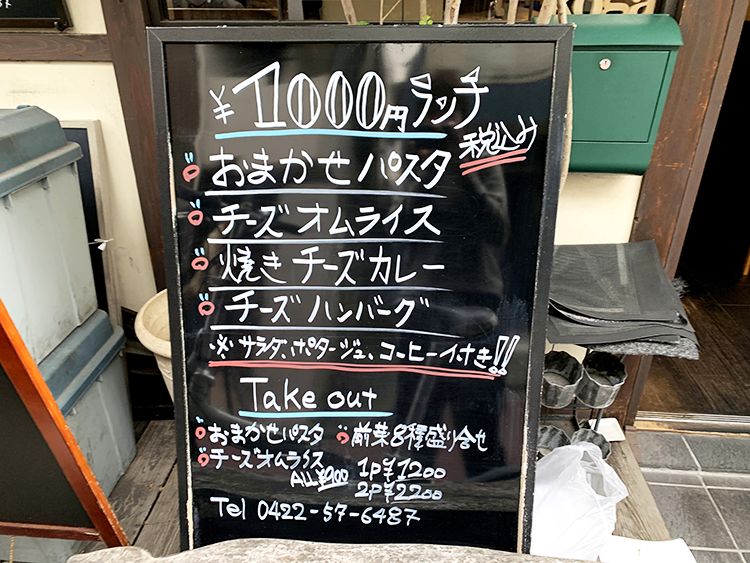 ¥1000円ランチ
税込み
おまかせパスタ
チーズオムライス
焼きチーズカレー
チーズハンバーグ
※サラダ、ポタージュ、コーヒー付き!!
Take out
おまかせパスタ
チーズオムライス
ALL ¥900
前菜8種盛り合せ
1P ¥1200
2P ¥2200
Tel 0422-57-6487